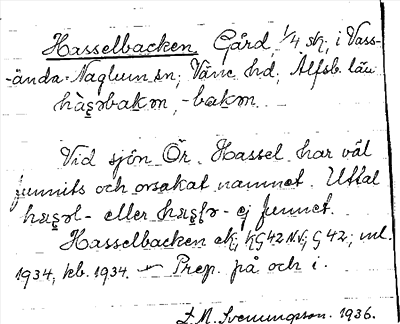 Hasselbacken, Gård, 1/4 sk, i Vass-
-ända-Naglum sn; Väne hd, Älfsb. län
-bakm
Vid sjön Ör. Hassel har väl
funnits och orsakat namnet. Uttal
eller ej funnet.
Hasselbacken ek, KG42NV; G42; ml.
1934, kb. 1934. — Prep. på och i.
D.N. Svenungsson. 1936.